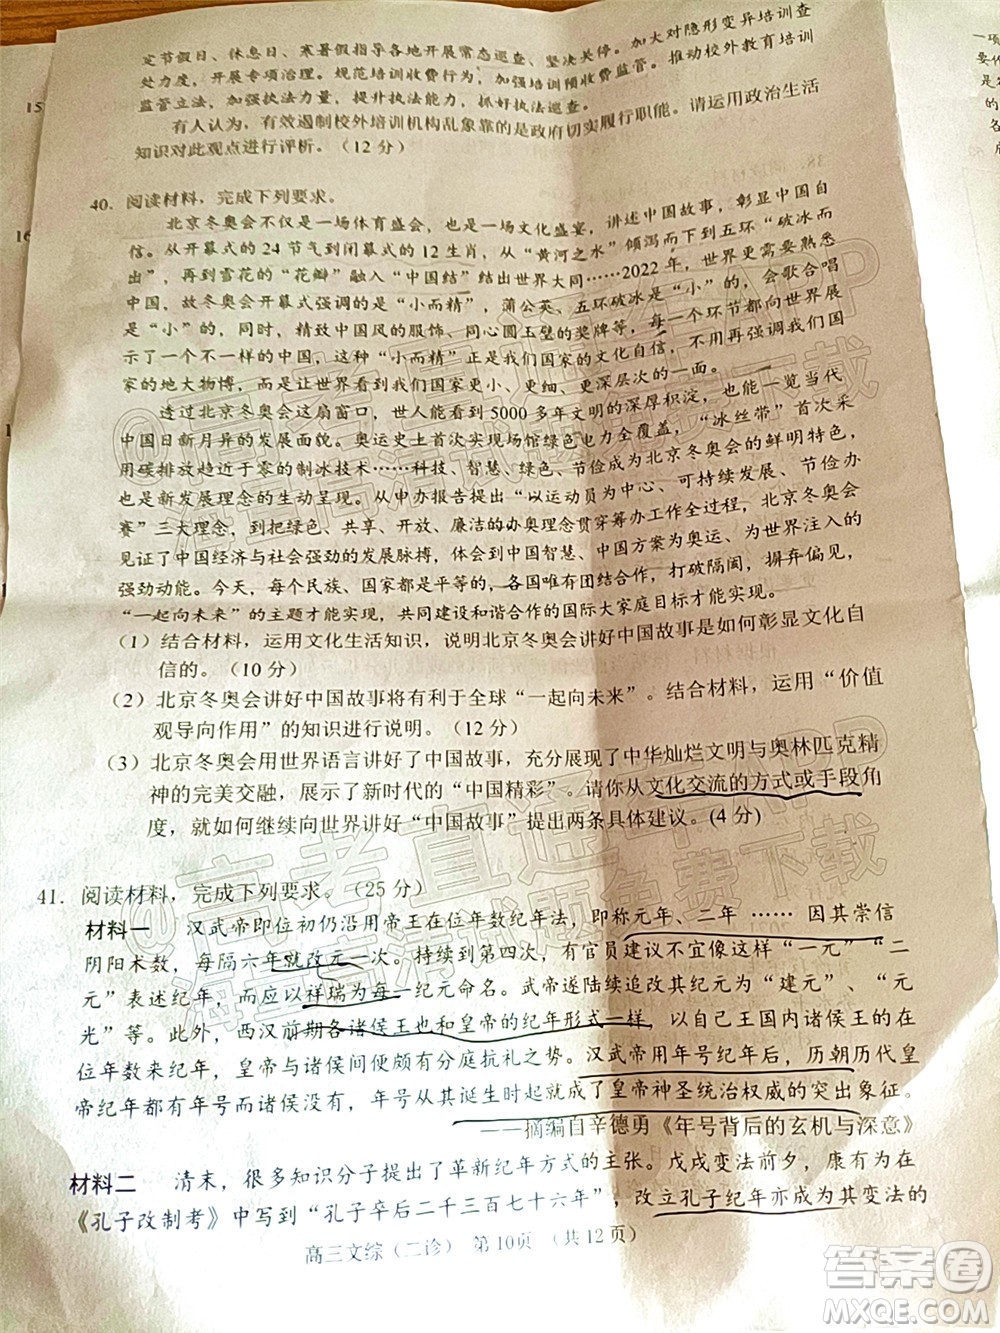 定节假日、休息日、寒暑假指导各地开展常态巡查、坚决关停。加大对隐形变异培训查
处力度，开展专项治理。规范培训收费行为，加强培训预收费监管。推动校外教育培训
监管立法，加强执法力量，提升执法能力，抓好执法巡查。
有人认为，有效遏制校外培训机构乱象靠的是政府切实履行职能。请运用政治生活
知识对此观点进行评析。（12分）
40．阅读材料，完成下列要求。
北京冬奥会不仅是一场体育盛会，也是一场文化盛宴，讲述中国故事，彰显中国自
信。从开幕式的24节气到闭幕式的12生肖，从“黄河之水”倾泻而下到五环“破冰而
出”，再到雪花的“花瓣”融入“中国结”结出世界大同……2022年，世界更需要熟悉
中国，故冬奥会开幕式强调的是“小而精”，蒲公英、五环破冰是“小”的，会歌合唱
是“小”的，同时，精致中国风的服饰、同心圆玉璧的奖牌等，每一个环节都向世界展
示了一个不一样的中国，这种“小而精”正是我们国家的文化自信，不用再强调我们国
家的地大物博，而是让世界看到我们国家更小、更细、更深层次的一面。
透过北京冬奥会这扇窗口，世人能看到5000多年文明的深厚积淀，也能一览当代
中国日新月异的发展面貌。奥运史上首次实现场馆绿色电力全覆盖，“冰丝带”首次采
用碳排放趋近于零的制冰技术……科技、智慧、绿色、节俭成为北京冬奥会的鲜明特质，
是新发展理念的生动呈现。从申办报告提出“以运动员为中心、可持续发展、节俭办
赛”三大理念，到把绿色、共享、开放、廉洁的办奥理念贯穿筹办工作全过程，世界
见证了中国经济与社会强劲的发展脉搏，体会到中国智慧、中国方案为奥运、为世界注入
强劲动能。今天，每个民族、国家都是平等的，各国加强团结合作，打破隔阂，摒弃偏见，
“一起向未来”的主题才能实现，共同建设和谐合作的国际大家庭目标才能实现。
（1）结合材料，运用文化生活知识，说明北京冬奥会讲好中国故事是如何彰显文化自
信的。（10分）
（2）北京冬奥会讲好中国故事将有利于全球“一起向未来”。结合材料，运用“价值
观导向作用”的知识进行说明。（12分）
（3）北京冬奥会用世界语言讲好了中国故事，充分展现了中华灿烂文明与奥林匹克精
神的完美交融，展示了新时代的“中国精彩”。请你从文化交流的方式或手段角
度，就如何继续向世界讲好“中国故事”提出两条具体建议。（4分）
41．阅读材料，完成下列要求。（25分）
材料一　汉武帝即位初仍沿用帝王在位年数纪年法，即称元年、二年……因其崇信
阴阳术数，每隔六年就改元一次。持续到第四次，有官员建议不宜像这样“一元”“二
元”表述纪年，而应以祥瑞为每一纪元命名。武帝遂陆续追改其纪元为“建元”、“元
光”等。此外，西汉前期各诸侯王也和皇帝的纪年形式一样，以自己王国内诸侯王在
位年数来纪年，皇帝与诸侯间便颇有分庭抗礼之势。汉武帝用年号纪年后，历朝历代皇
帝纪年都有年号而诸侯没有，年号从其诞生时起就成了皇帝神圣统治权威的突出象征。
——摘编自辛德勇《年号背后的玄机与深意》
材料二　清末，很多知识分子提出了革新纪年方式的主张。戊戌变法前夕，康有为的
《孔子改制考》中写到“孔子卒后二千三百七十六年”，改立孔子纪年亦成为其变法的
高三文综（二诊）　第10页　（共12页）
15
16
1
@高考直通车APP
海量高清试题免费下载
@高考直通车APP
海量高清试题免费下载
答案圈
MXQE.COM